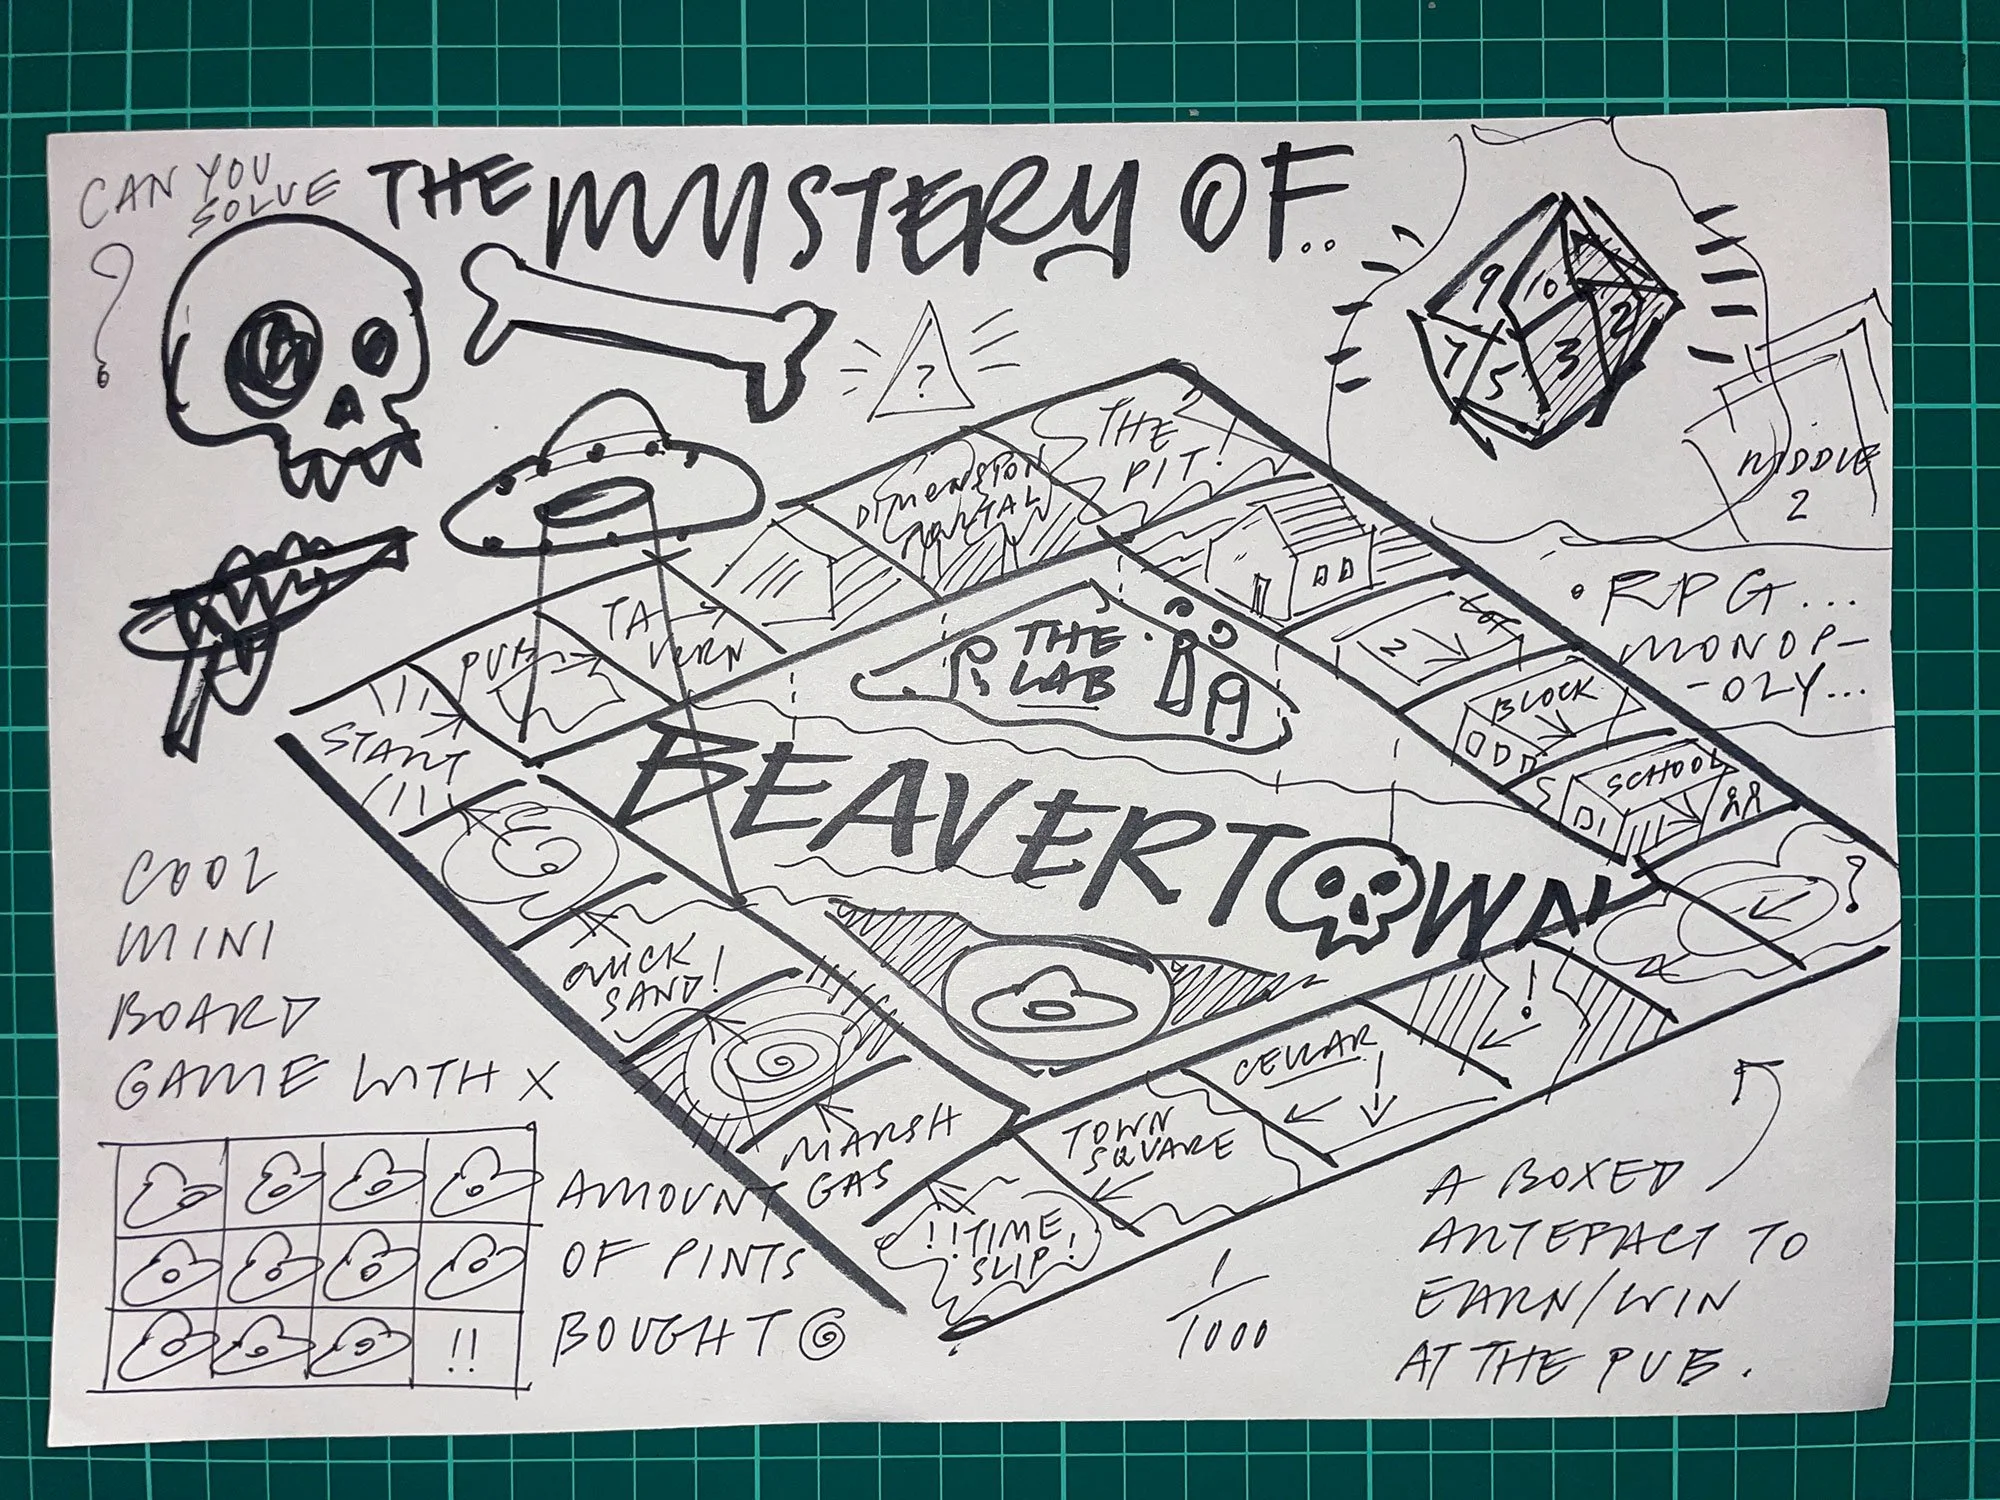 CAN YOU
SOLVE
?
THE MYSTERY OF..
?
9
10
7
5
3
2
RIDDLE
2
• RPG...
MONOP-
-OLY...
DIMENSION
PORTAL
THE
PIT!
TA
VERN
PUB
START
THE
LAB
2
BLOCK
SCHOOL
BEAVERTOWN
?
!
QUICK
SAND!
MARSH
GAS
!!TIME
SLIP!
TOWN
SQUARE
CELLAR
COOL
MINI
BOARD
GAME WITH X
AMOUNT
OF PINTS
BOUGHT
!!
1
1000
A BOXED
ARTEFACT TO
EARN/WIN
AT THE PUB.